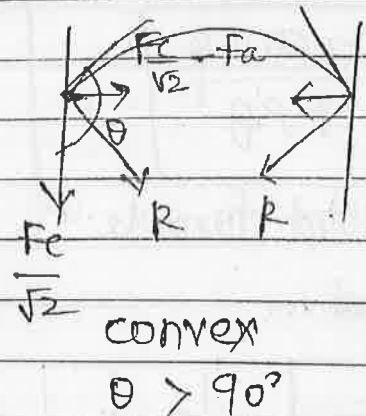 Fc/√2 - Fa
θ
R R
Fc/√2
convex
θ > 90°